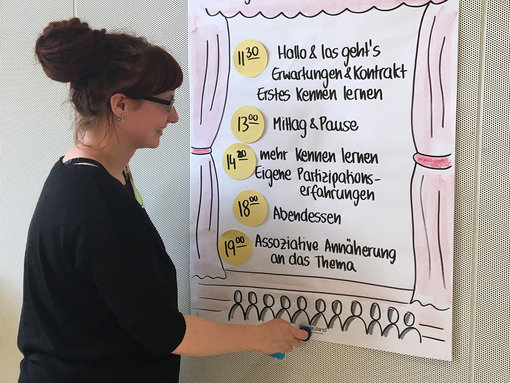 11³⁰ Hallo & los geht's
Erwartungen & Kontrakt
Erstes Kennen lernen
13⁰⁰ Mittag & Pause
14³⁰ mehr Kennen lernen
Eigene Partizipations-
erfahrungen
18⁰⁰ Abendessen
19⁰⁰ Assoziative Annäherung
an das Thema